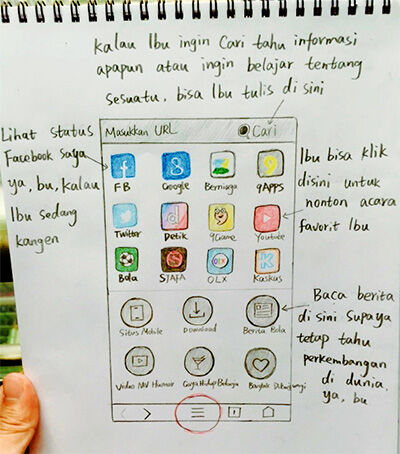 kalau Ibu ingin Cari tahu informasi
apapun atau ingin belajar tentang
sesuatu, bisa Ibu tulis di sini
Lihat status
Facebook Saya
ya, bu, kalau
Ibu sedang
kangen
Masukkan URL
Cari
FB
Google
Berniaga
9Apps
Twitter
Detik
9Game
Youtube
Bola
S/AFA
OLX
Kaskus
Situs Mobile
Download
Berita Bola
Video MV Humor
Gaya Hidup Bahagia
Banyak
Ibu bisa klik
disini untuk
nonton acara
favorit Ibu
Baca berita
di sini supaya
tetap tahu
perkembangan
di dunia,
ya, bu